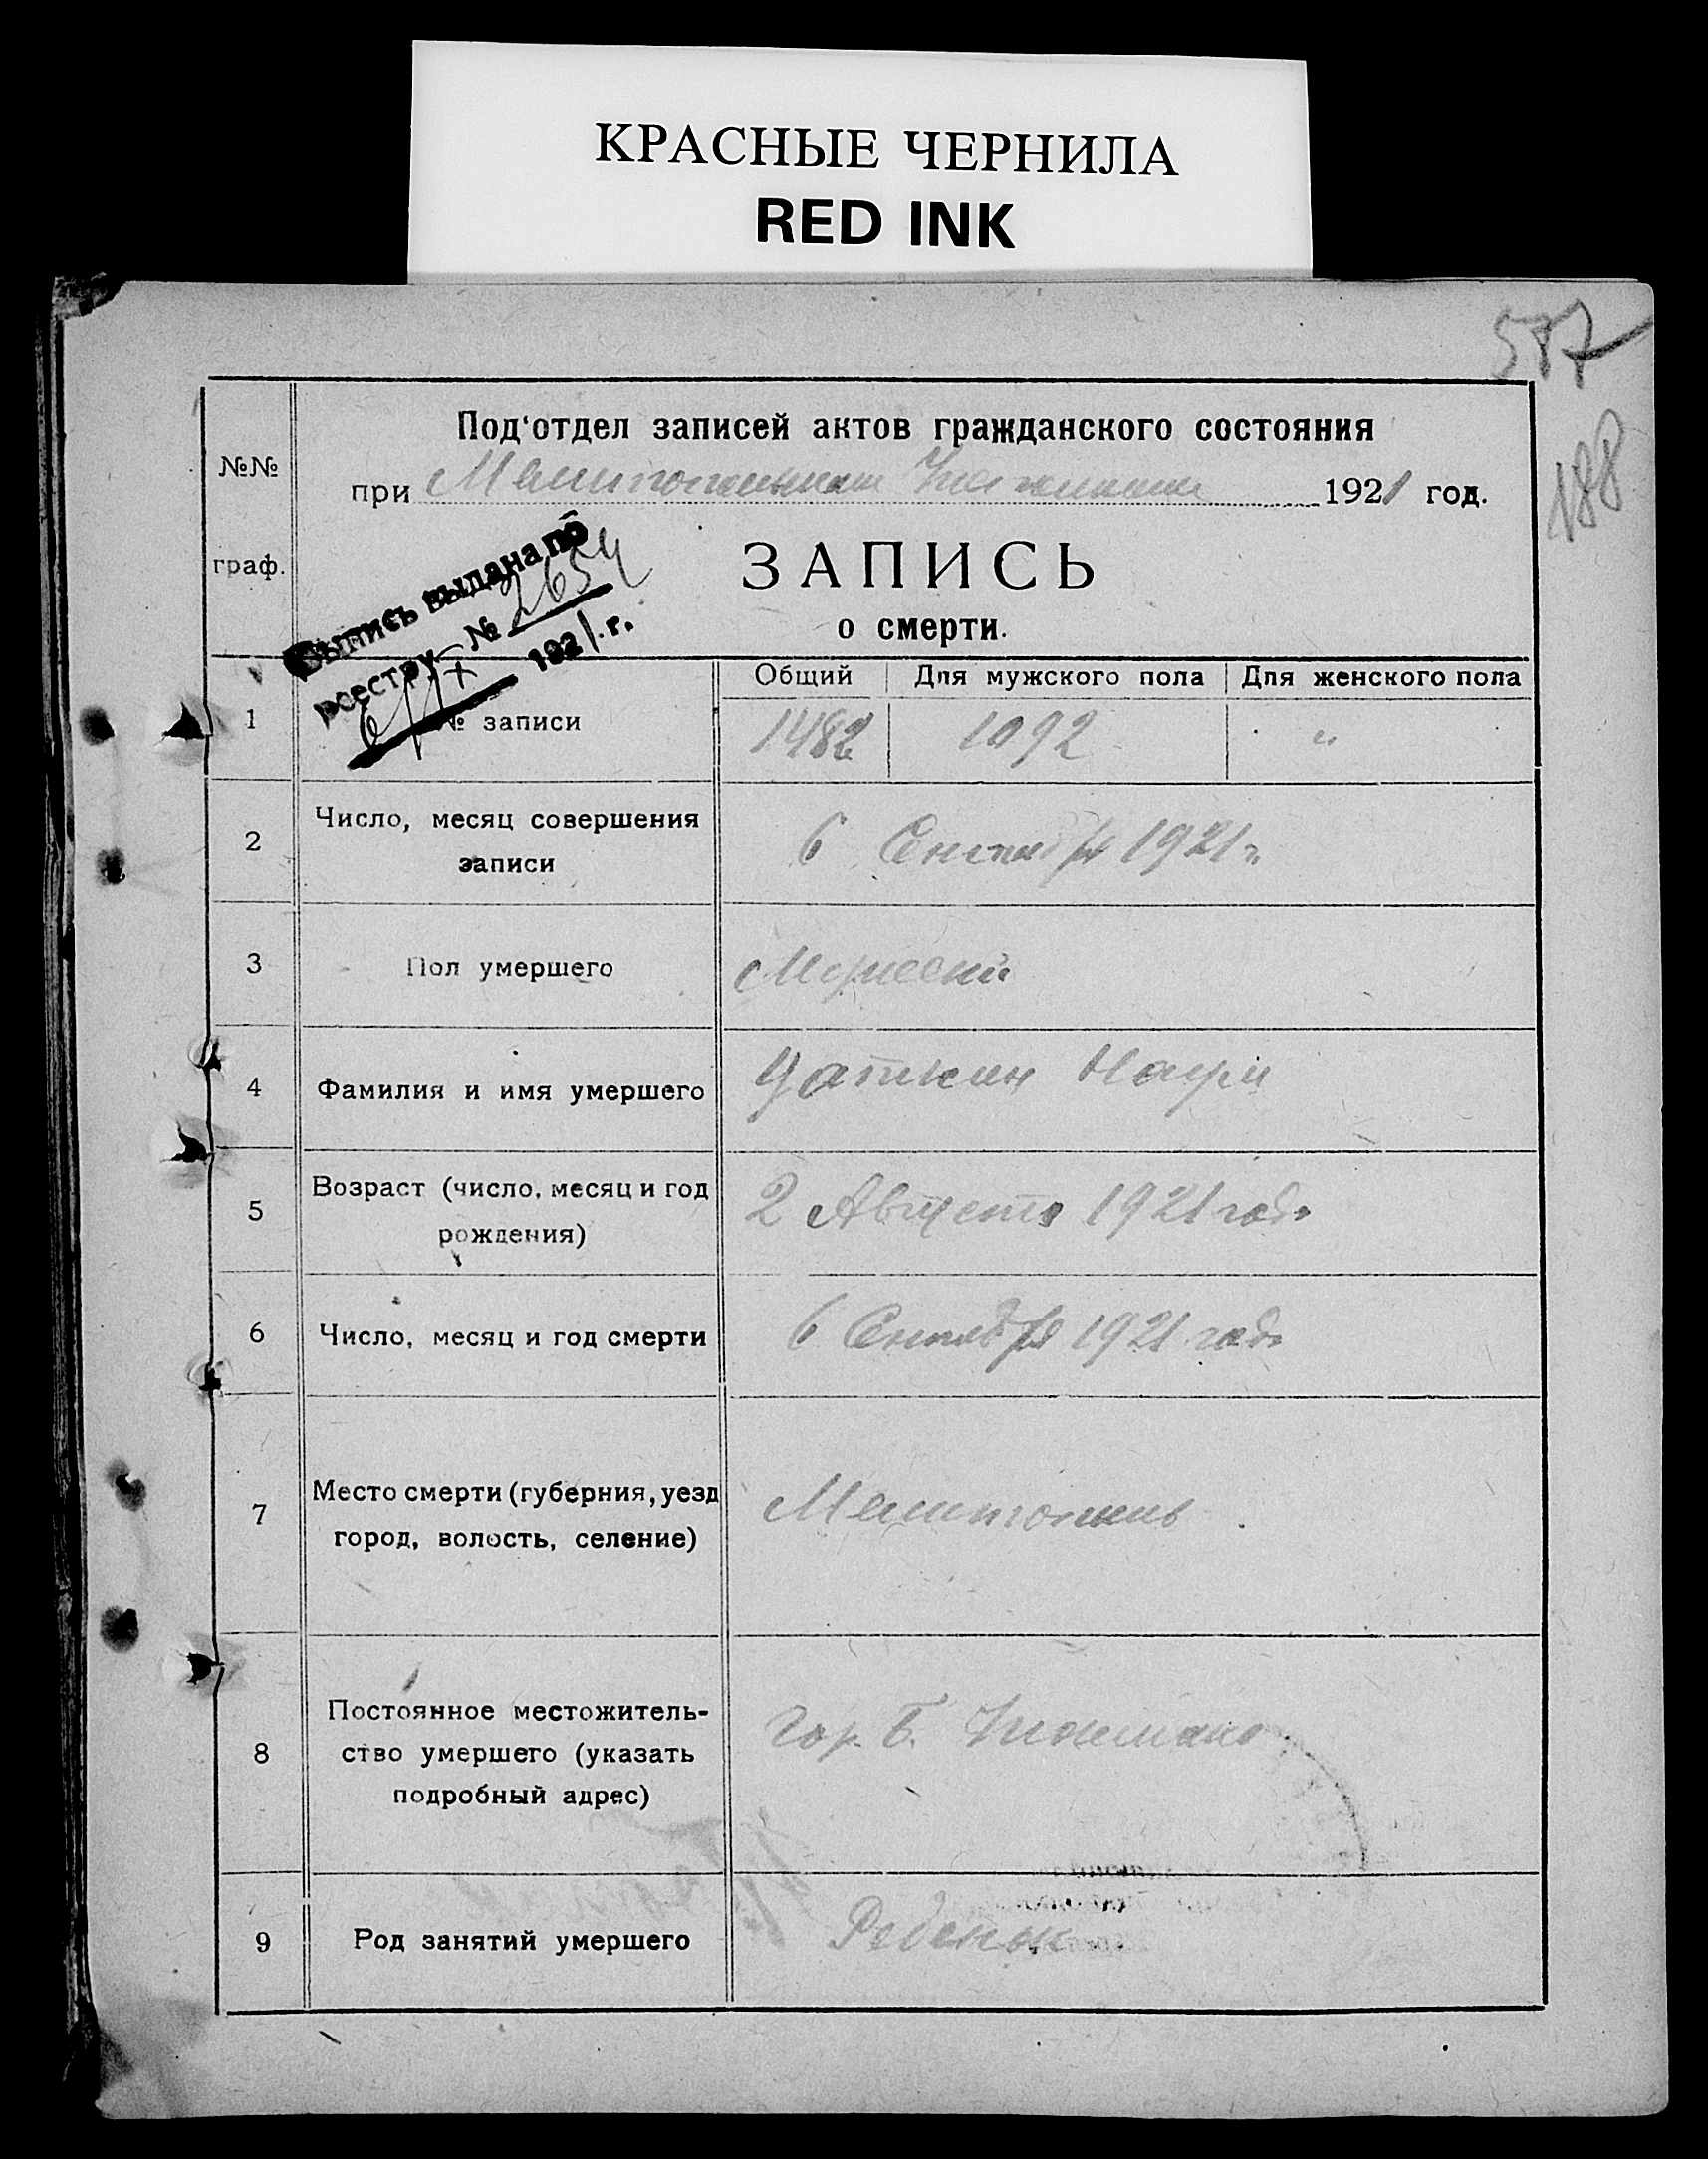 КРАСНЫЕ ЧЕРНИЛА
RED INK
587
188
Под‘отдел записей актов гражданского состояния
№№
при 1921 год.
граф.
ЗАПИСЬ
о смерти.
Выпись выдана по
реестру № 2654
6/IX 1921 г.
Общий Для мужского пола Для женского пола
1 № записи 1482 1092 "
2 Число, месяц совершения
записи
6 Сентября 1921 г.
3 Пол умершего Мужской
4 Фамилия и имя умершего Цаткин Наум
5 Возраст (число, месяц и год
рождения)
2 Августа 1921 года
6 Число, месяц и год смерти 6 Сентября 1921 года
7 Место смерти (губерния, уезд
город, волость, селение)
Мелитополь
8 Постоянное местожитель-
ство умершего (указать
подробный адрес)
гор. Б.
9 Род занятий умершего Ребенок